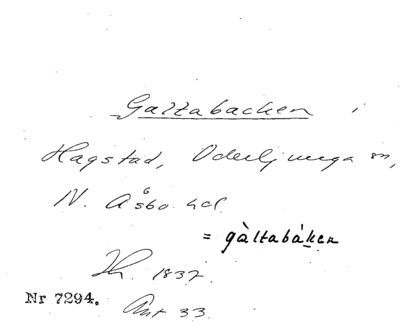 Galtabacken i
Hagstad, Oderljunga sn,
N. Åsbo hd.
= gàltabàken
Lh. 1837.
Nr 7294. Ant 33